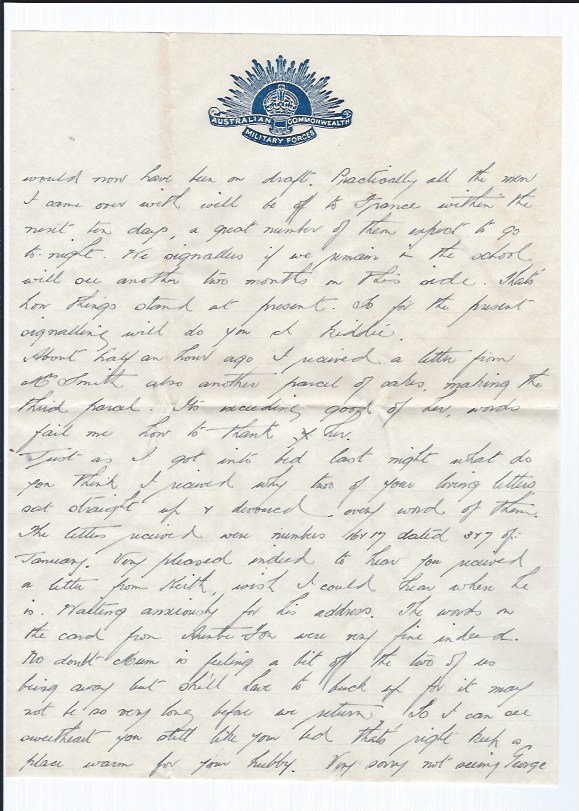 AUSTRALIAN COMMONWEALTH
MILITARY FORCES
would now have been on draft. Practically all the men
I came over with will be off to France within the
next ten days, a great number of them expect to go
to-night. We signallers if we remain in the school
will see another two months on this side. Thats
how things stand at present. So for the present
signalling will do you & I kiddie.
About half an hour ago I received a letter from
Mrs Smith also another parcel of cakes, making the
third parcel. Its exceeding good of her, words
fail me how to thank her.
Just as I got into bed last night what do
you think I received why two of your loving letters
sat straight up & devoured every word of them.
The letters received were numbers 16 & 17 dated 3 & 7 of
January. Very pleased indeed to hear you received
a letter from Keith, wish I could hear where he
is. Waiting anxiously for his address. The words on
the card from Auntie were very fine indeed.
No doubt Mum is feeling a bit off the two of us
being away but she'll have to buck up for it may
not be so very long before we return. So I can see
sweetheart you still like your bed thats right keep a
place warm for your hubby. Very sorry not seeing George